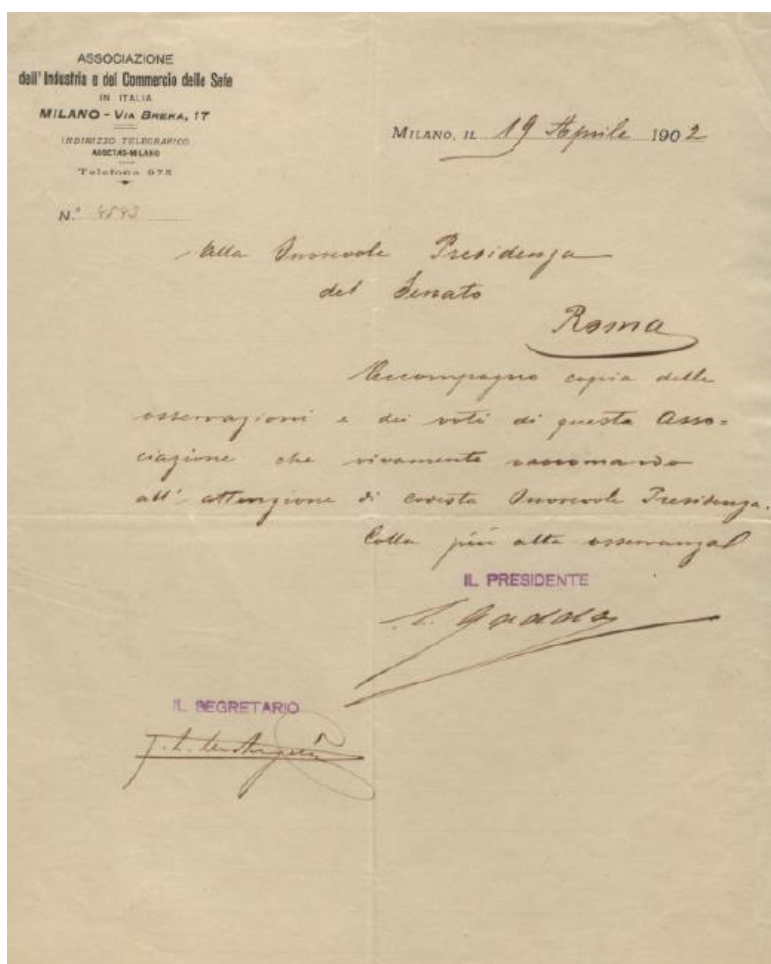 ASSOCIAZIONE
dell'Industria e del Commercio delle Sete
IN ITALIA
MILANO - VIA BRERA, 17
INDIRIZZO TELEGRAFICO
ASSETAS-MILANO
Telefono 975
N.° 4543
MILANO, IL 19 Aprile 1902
Alla Onorevole Presidenza
del Senato
Roma
Accompagno copia delle
osservazioni e dei voti di questa Asso=
ciazione che vivamente raccomando
all'attenzione di codesta Onorevole Presidenza.
Colla più alta osservanza
IL PRESIDENTE
Gadda
IL SEGRETARIO